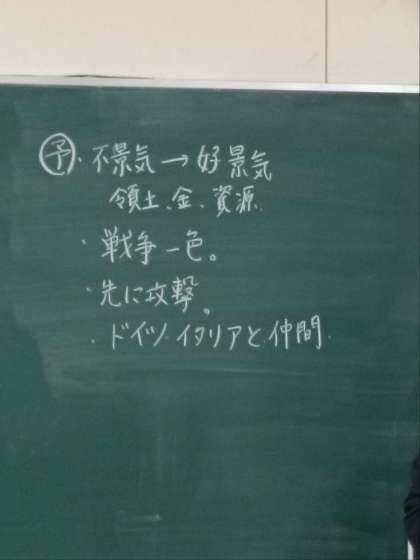 予・不景気→好景気
領土、金、資源
・戦争一色。
・先に攻撃。
・ドイツ・イタリアと仲間